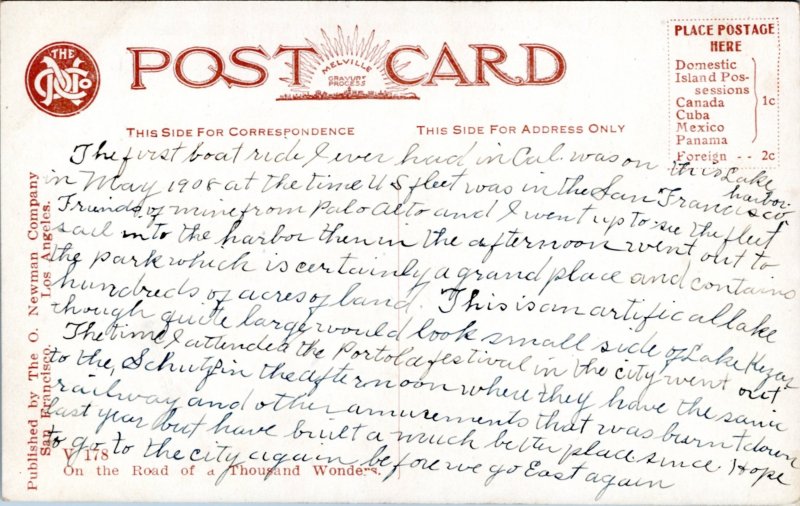 THE
N Co
POST CARD
MELVILLE
GRAVURE
PROCESS
PLACE POSTAGE
HERE
Domestic
Island Pos-
sessions
Canada
Cuba
Mexico
Panama
1c
Foreign - - 2c
THIS SIDE FOR CORRESPONDENCE
THIS SIDE FOR ADDRESS ONLY
The first boat ride I ever had in Cal. was on this Lake
in May 1908 at the time US fleet was in the San Francisco harbor
Friends of mine from Palo Alto and I went up to see the fleet
sail into the harbor then in the afternoon went out to
the park which is certainly a grand place and contains
hundreds of acres of land. This is an artifical lake
though quite large would look small side of Lake Kezar
The time I attended the Portola festival in the city went out
to the, Schutz in the afternoon where they have the scenic
railway and other amusements that was burnt down
last year but have built a much better place since. Hope
to go to the city again before we go East again
V 178
On the Road of a Thousand Wonders.
Published by The O. Newman Company
San Francisco. Los Angeles.